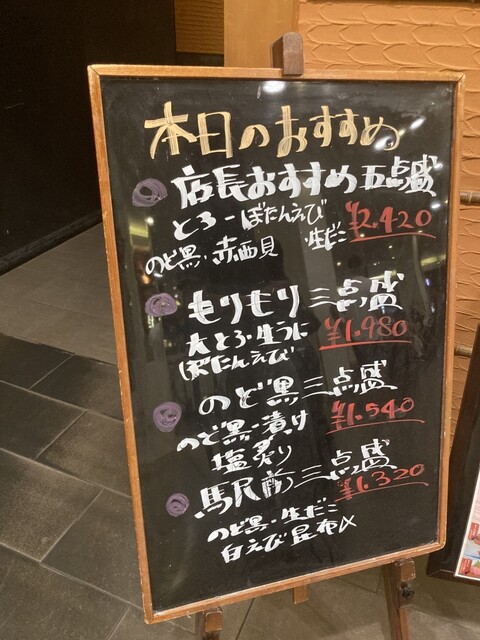 本日のおすすめ
店長おすすめ五点盛
とろ・ぼたんえび ¥2.420
のど黒・赤西貝 生だこ
もりもり三点盛
大とろ・生うに ¥1.980
ぼたんえび
のど黒三点盛
のど黒・漬け ¥1.540
塩炙り
駅前三点盛
¥1.320
のど黒・生だこ
白えび昆布〆